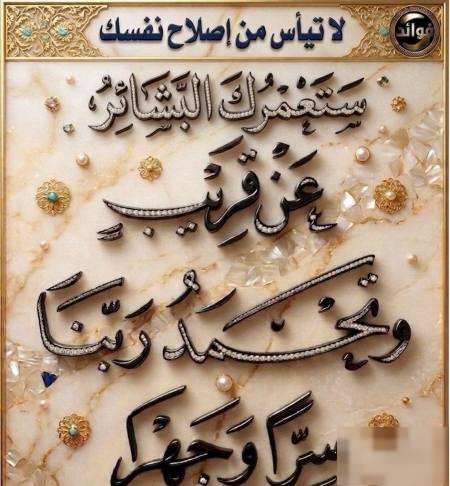 لا تيأس من إصلاح نفسك
فوائد
سَتَغْمُرُكَ الْبَشَائِرُ
عَنْ قَرِيبٍ
وَتَحْمَدُ رَبَّنَا
سِرًّا وَجَهْرًا